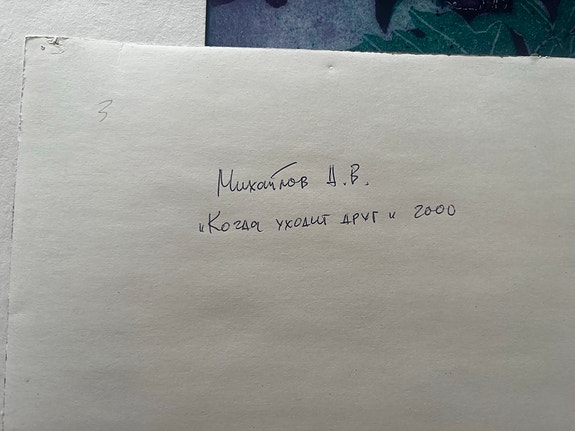 3
Михайлов А.В.
"Когда уходит друг" 2000